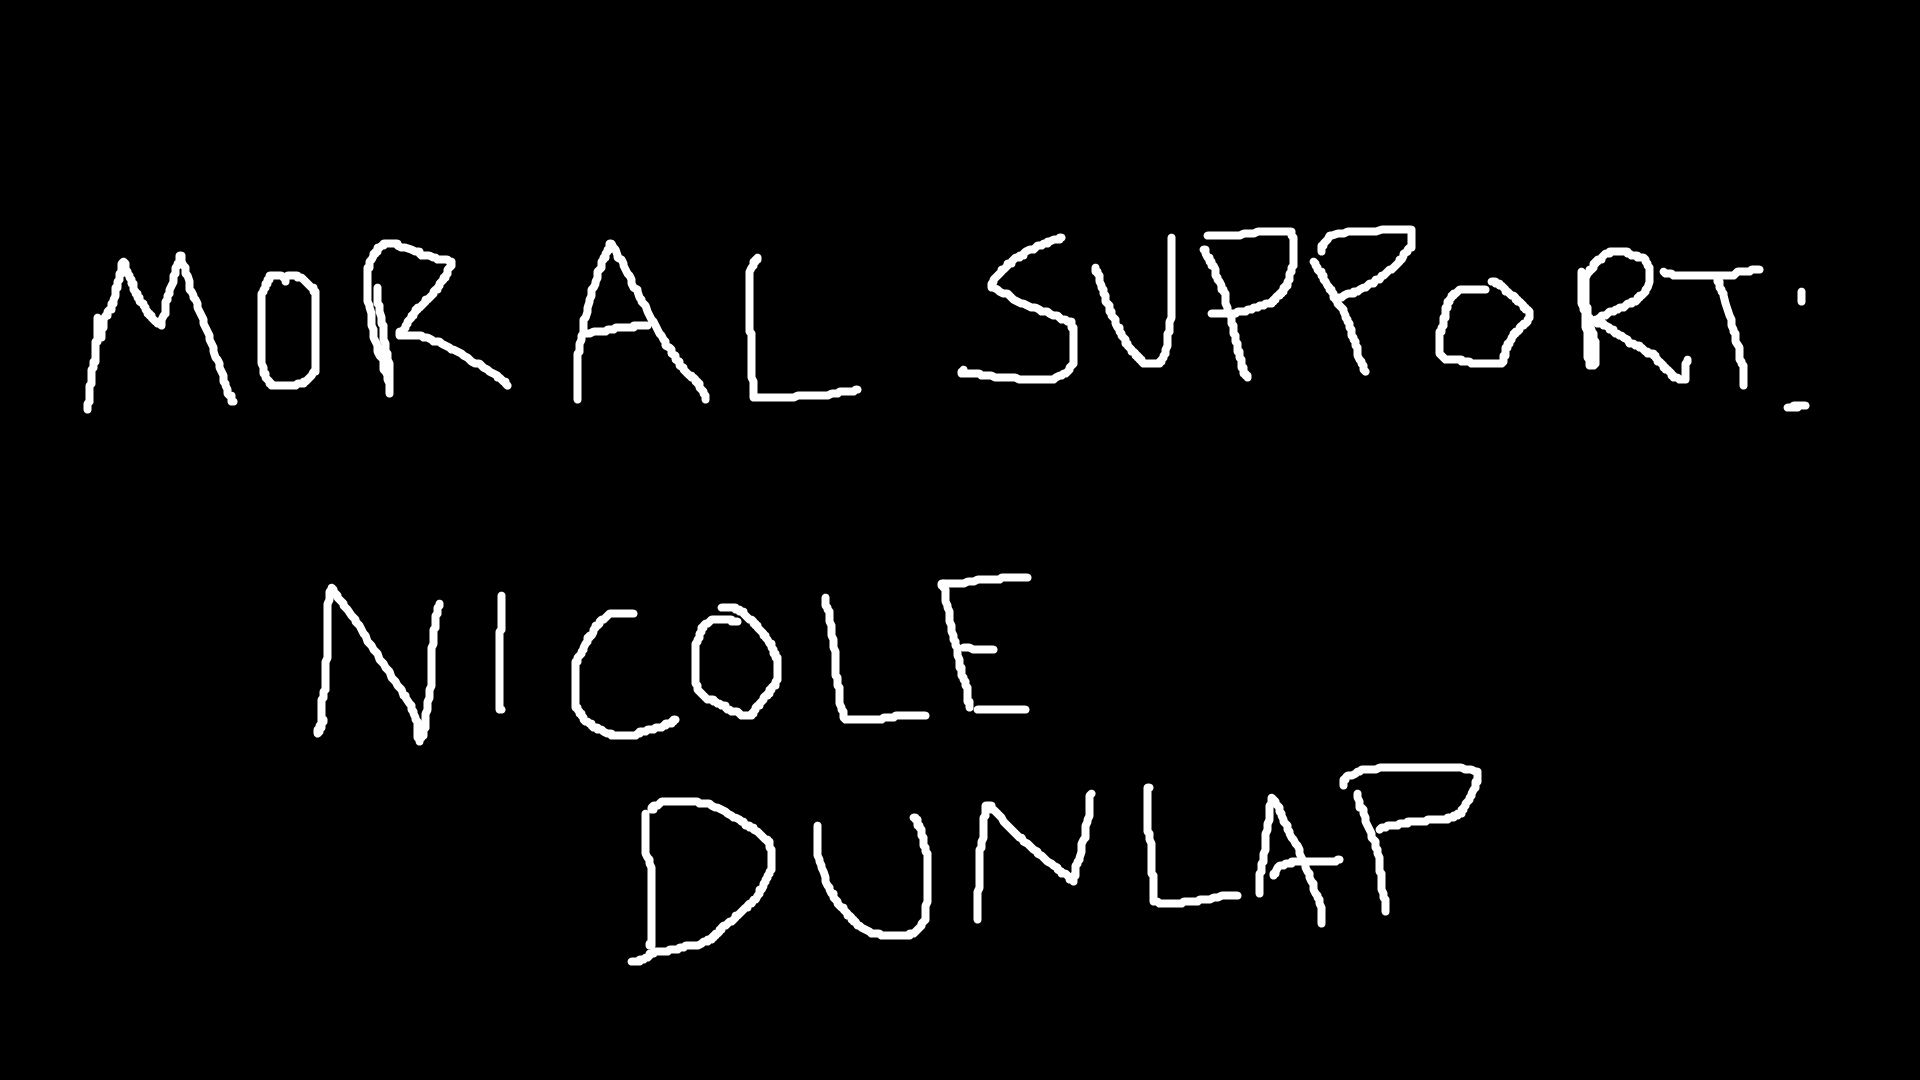 MORAL SUPPORT:
NICOLE
DUNLAP